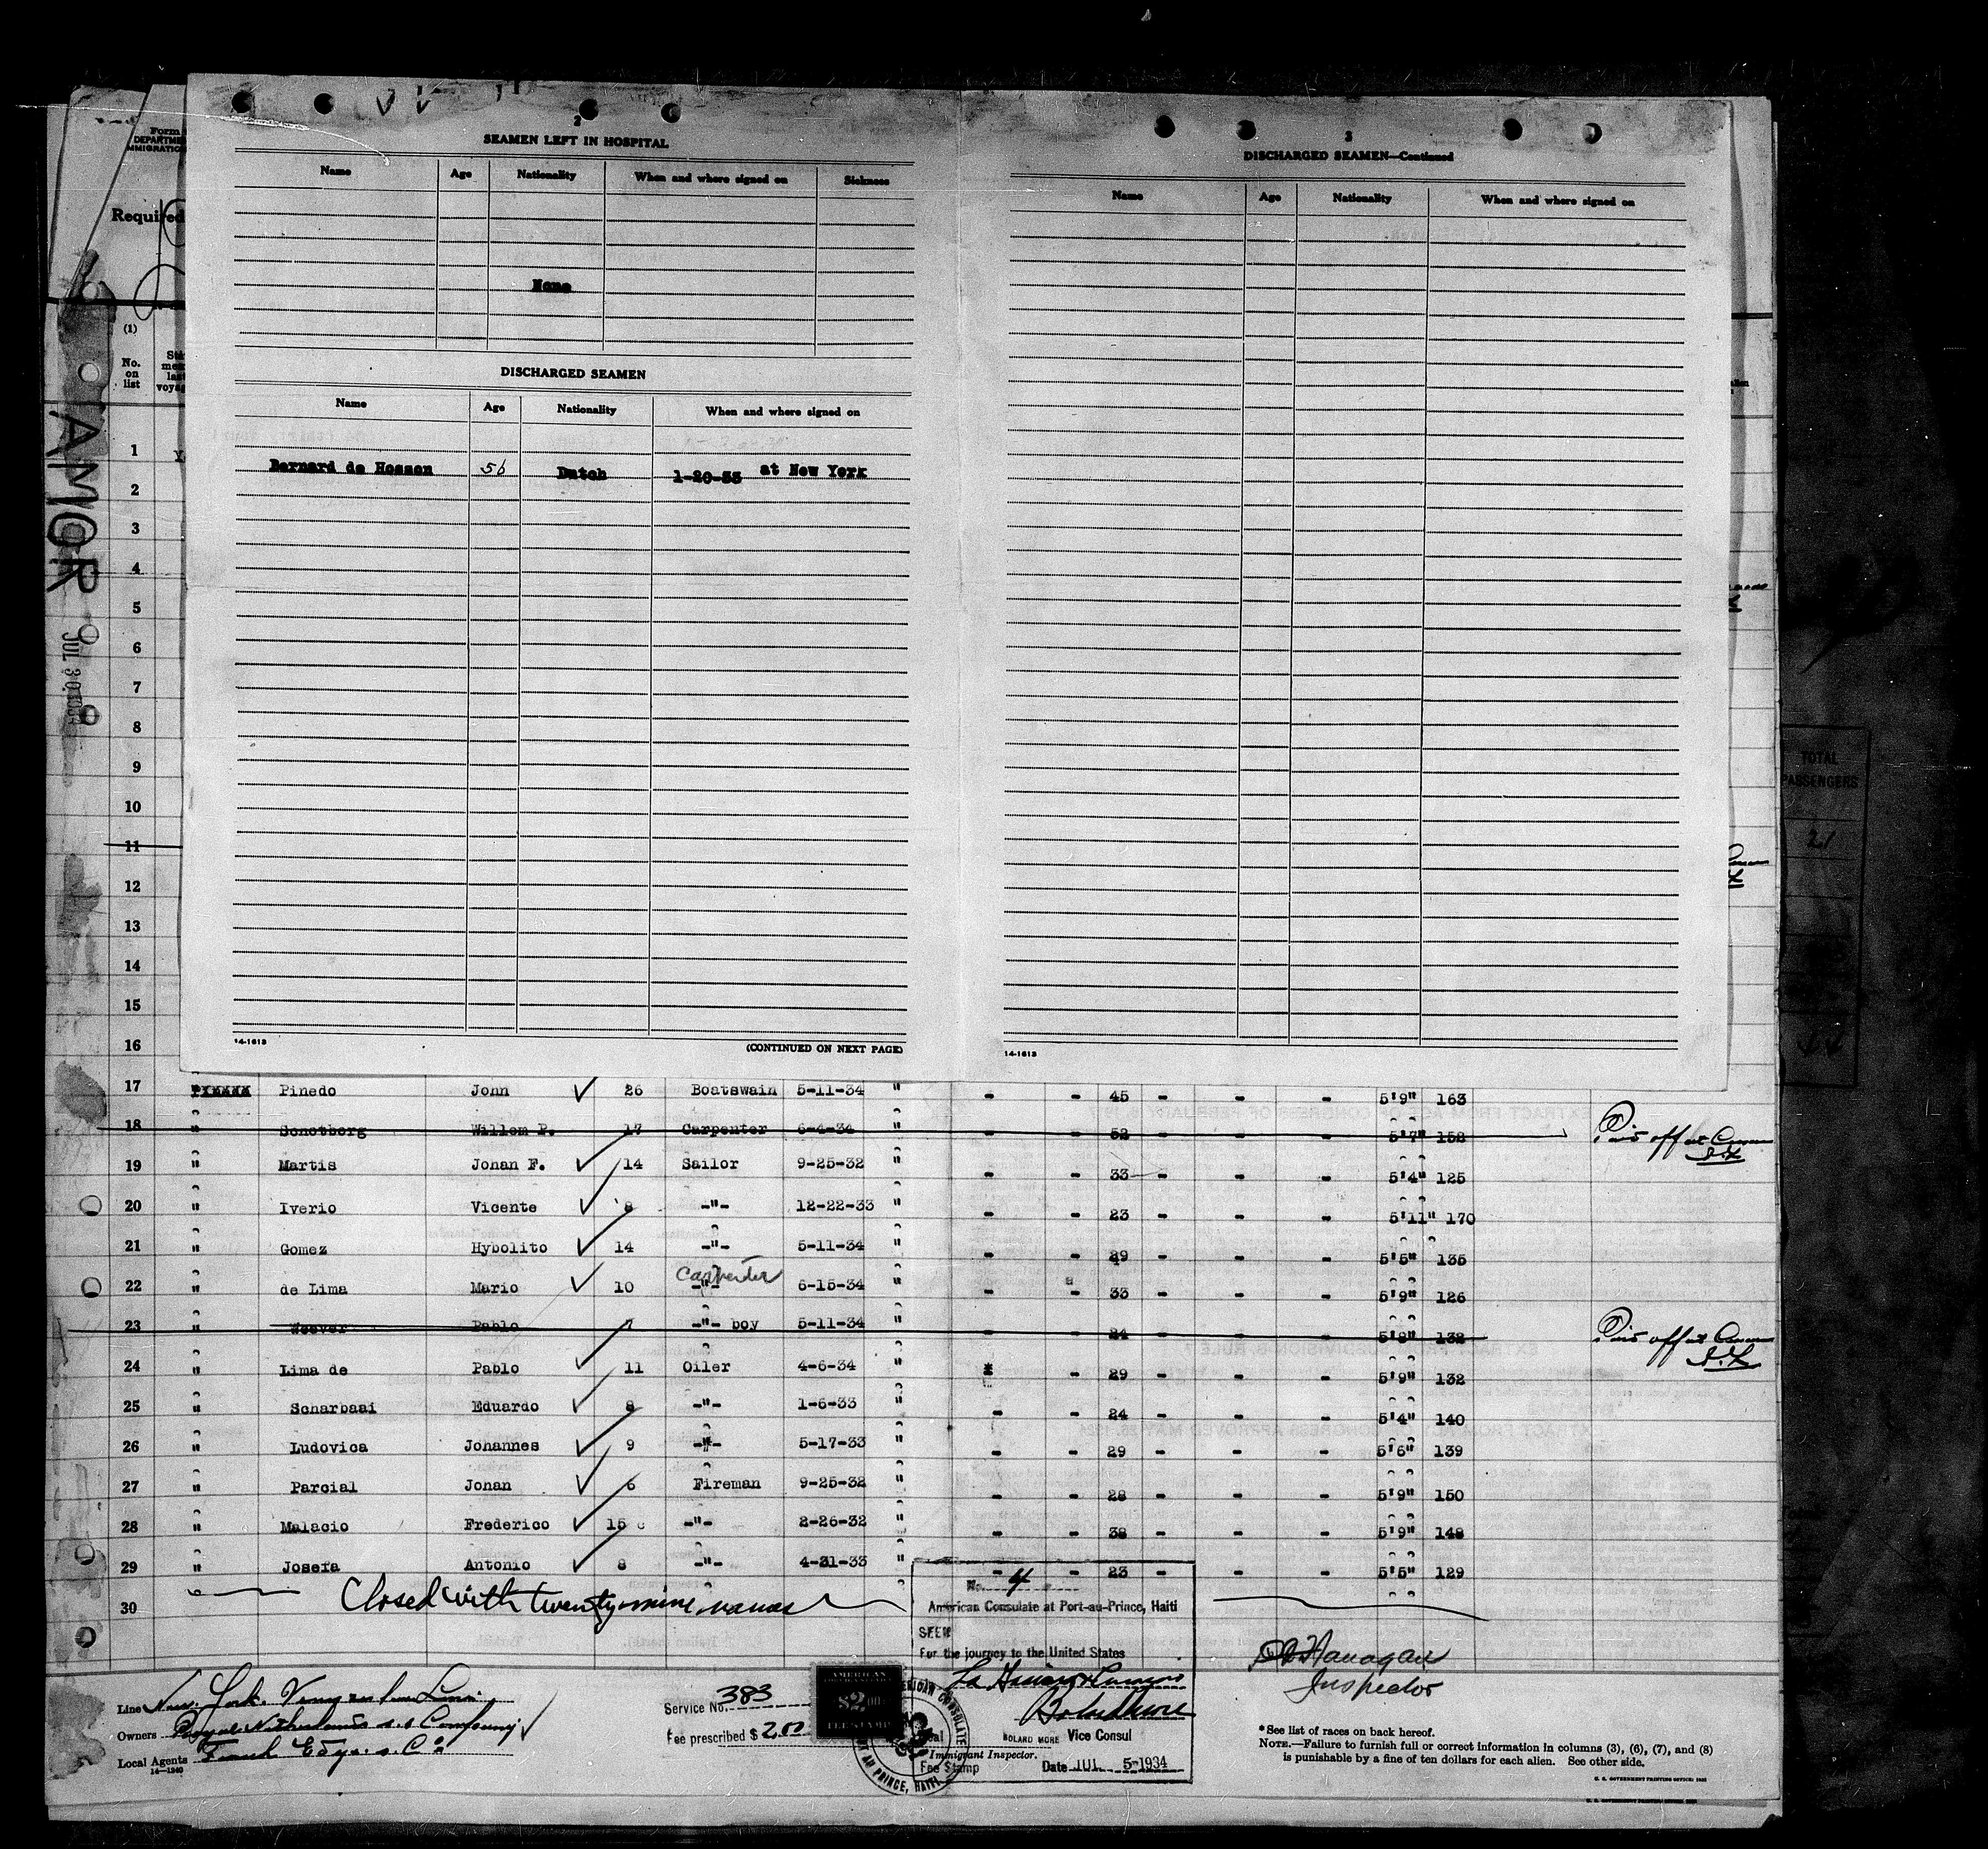 2
SEAMEN LEFT IN HOSPITAL
Name Age Nationality When and where signed on Sickness
None
DISCHARGED SEAMEN
Name Age Nationality When and where signed on
Bernard de Hossen 56 Dutch 1-20-33 at New York
14-1613 (CONTINUED ON NEXT PAGE)
3
DISCHARGED SEAMEN—Continued
Name Age Nationality When and where signed on
14-1613
Form
DEPARTME
MMIGRATIO
Required
(1)
No. on list
AMOR
JUL 30 1934
TOTAL PASSENGERS
21
1
2
3
4
5
6
7
8
9
10
11
12
13
14
15
16
17 Pinedo John 26 Boatswain 5-11-34 " - - 45 - - - 5'9" 163
18 " Schotborg Willem P. 17 Carpenter 6-4-34 " - 52 - - - 5'7" 152
19 " Martis Johan F. 14 Sailor 9-25-32 " - - 33 - - - 5'4" 125
20 " Iverio Vicente 8 -"- 12-22-33 " - - 23 - - - 5'11" 170
21 " Gomez Hybolito 14 -"- 5-11-34 " - - 29 - - - 5'5" 135
22 " de Lima Mario 10 Carpenter -"- 6-15-34 " - - 33 - - - 5'9" 126
23 " Weever Pablo 7 -"- boy 5-11-34 " - - 24 - - - 5'8" 132
24 " Lima de Pablo 11 Oiler 4-6-34 " - 29 - - - 5'9" 132
25 " Scharbaai Eduardo 8 -"- 1-6-33 " - - 24 - - - 5'4" 140
26 " Ludovica Johannes 9 -"- 5-17-33 " - - 29 - - - 5'6" 139
27 " Parcial Johan 6 Fireman 9-25-32 " - - 28 - - - 5'9" 150
28 " Malacio Frederico 15 -"- 2-26-32 " - - 38 - - - 5'9" 148
29 " Josefa Antonio 8 -"- 4-21-33 " - - 23 - - - 5'5" 129
30 Closed with twenty nine names
No. 4
American Consulate at Port-au-Prince, Haiti
SEEN
For the journey to the United States
ROLAND MORE Vice Consul
Immigrant Inspector.
Fee Stamp Date JUL 5-1934
AMERICAN
$2.00
FEE STAMP
AMERICAN CONSULATE
PORT AU PRINCE, HAITI
Flanagan
Inspector
Line New York Venezuelan Line
Owners Royal Netherlands s.s Company
Local Agents
14-1240
Service No. 383
Fee prescribed $ 2.00
*See list of races on back hereof.
NOTE.—Failure to furnish full or correct information in columns (3), (6), (7), and (8)
is punishable by a fine of ten dollars for each alien. See other side.
U. S. GOVERNMENT PRINTING OFFICE: